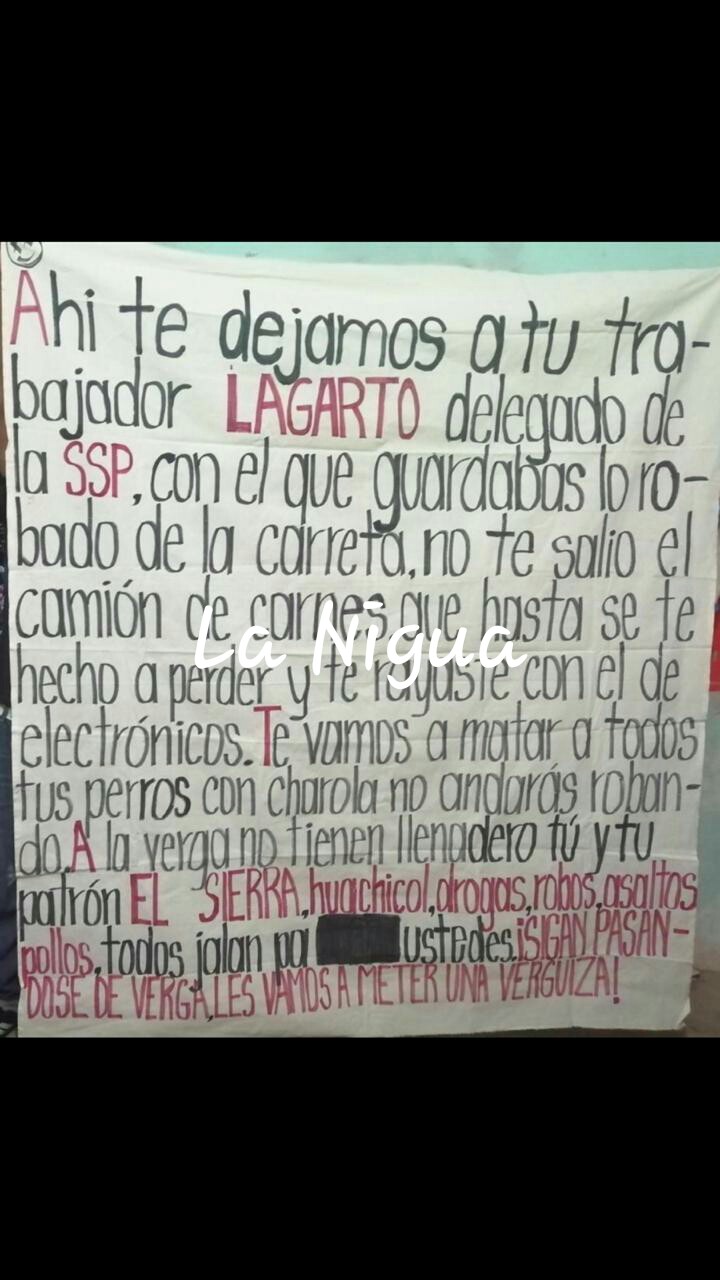 Ahi te dejamos a tu tra-
bajador LAGARTO delegado de
la SSP, con el que guardabas lo ro-
bado de la carreta, no te salio el
camión de carnes, que hasta se te
La Nigua
hecho a perder y te rayaste con el de
electrónicos. Te vamos a matar a todos
tus perros con charola no andarás roban-
do. A la verga no tienen llenadero tú y tu
patrón EL SIERRA, huachicol, drogas, robos, asaltos
pollos, todos jalan pa ustedes. ¡SIGAN PASAN-
DOSE DE VERGA, LES VAMOS A METER UNA VERGUIZA!